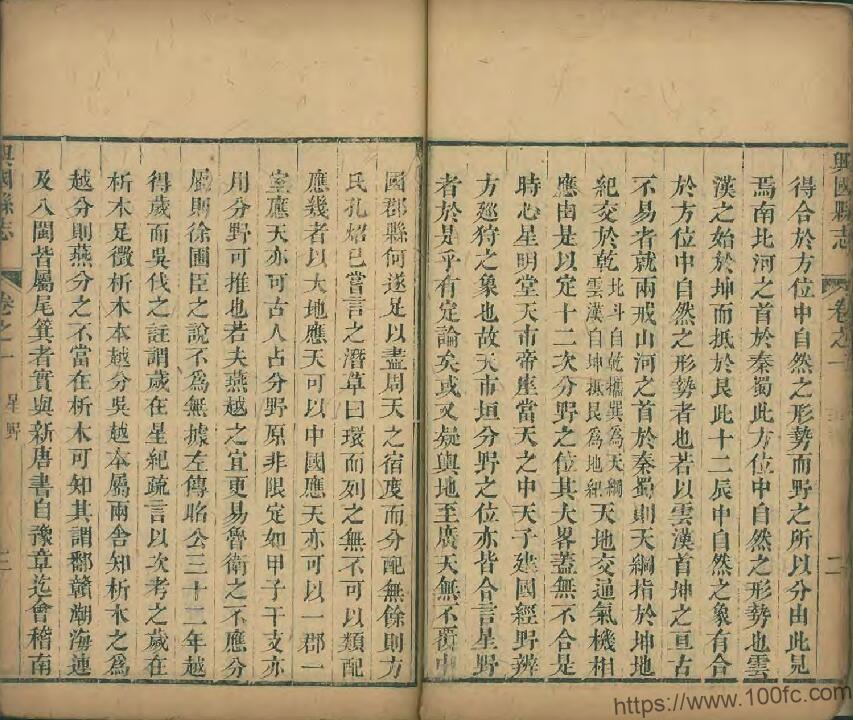 興國縣志
卷之一
二
得合於方位中自然之形勢而野之所以分由此見
焉南北河之首於秦蜀此方位中自然之形勢也雲
漢之始於坤而抵於艮此十二辰中自然之象有合
於方位中自然之形勢者也若以雲漢首坤之亘古
不易者就兩戒山河之首於秦蜀則天綱指於坤地
紀交於乾北斗自乾攜巽為天綱雲漢自坤抵艮為地紀天地交通氣機相
應由是以定十二次分野之位其大畧蓋無不合是
時心星明堂天市帝座當天之中天子建國經野辨
方廵狩之象也故天市垣分野之位亦皆合言星野
者於是乎有定論矣或又疑輿地至廣天無不覆中
國郡縣何遂足以盡周天之宿度而分配無餘則方
氏孔炤已嘗言之潛草曰環而列之無不可以類配
應幾者以大地應天可以中國應天亦可以一郡一
室應天亦可古人占分野原非限定如甲子干支亦
用分野可推也若夫燕越之宜更易魯衛之不應分
屬則徐圃臣之說不為無據左傳昭公三十二年越
得歲而吳伐之註謂歲在星紀疏言以次考之歲在
析木足徵析木本越分吳越本屬兩舍知析木之為
越分則燕分之不當在析木可知其謂鄱贛潮海連
及八閩皆屬尾箕者實與新唐書自豫章迄會稽南
興國縣志
卷之一
星野
三
https://www.100fc.com